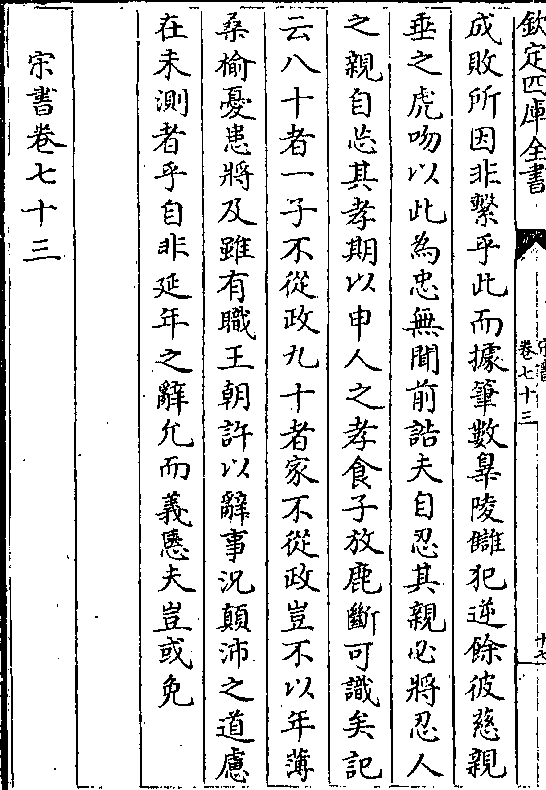 欽定四庫全書
宋書
卷七十三
十七
成敗所因非繫乎此而據筆數辠陵讎犯逆餘彼慈親
垂之虎吻以此為忠無聞前誥夫自忍其親必將忍人
之親自忘其孝期以申人之孝食子放鹿斷可識矣記
云八十者一子不從政九十者家不從政豈不以年薄
桑榆憂患將及雖有職王朝許以辭事況顛沛之道慮
在未測者乎自非延年之辭允而義愜夫豈或免
宋書卷七十三